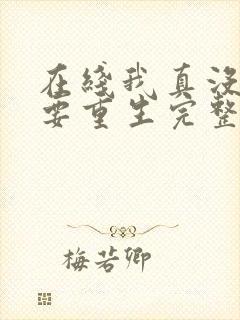 在綫我真没
要重生完整
梅若卿